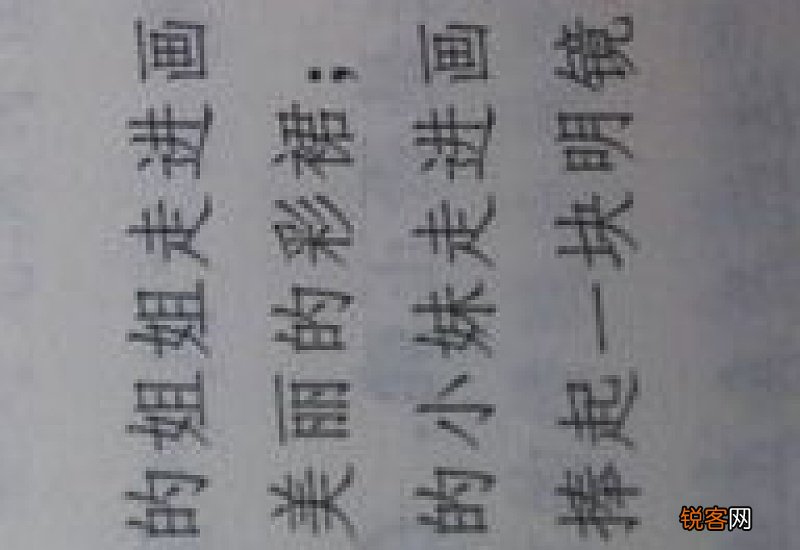 的姐姐走进画
美丽的彩裙；
的小妹走进画
捧起一块明镜
锐客网